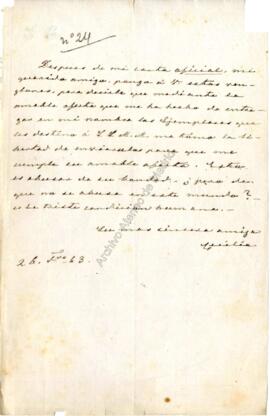 nº 24
Despues de mi carta oficial, mi
querida amiga, pongo á Vd estos ren-
glones, para decirle que mediante la
amable oferta que me ha hecho de entre-
gar en mi nombre los Ejemplares que
les destino á S.S.A.A. me tomo la li-
bertad de enviarselos para que me
cumpla su amable oferta. Esto
es abusar de su bondad. ¿pero de
que no se abusa en este mundo?
es la triste condicion humana.
Su mas sincera amiga
Cecilia
26. Fro 63.
Archivo Ateneo de Madrid